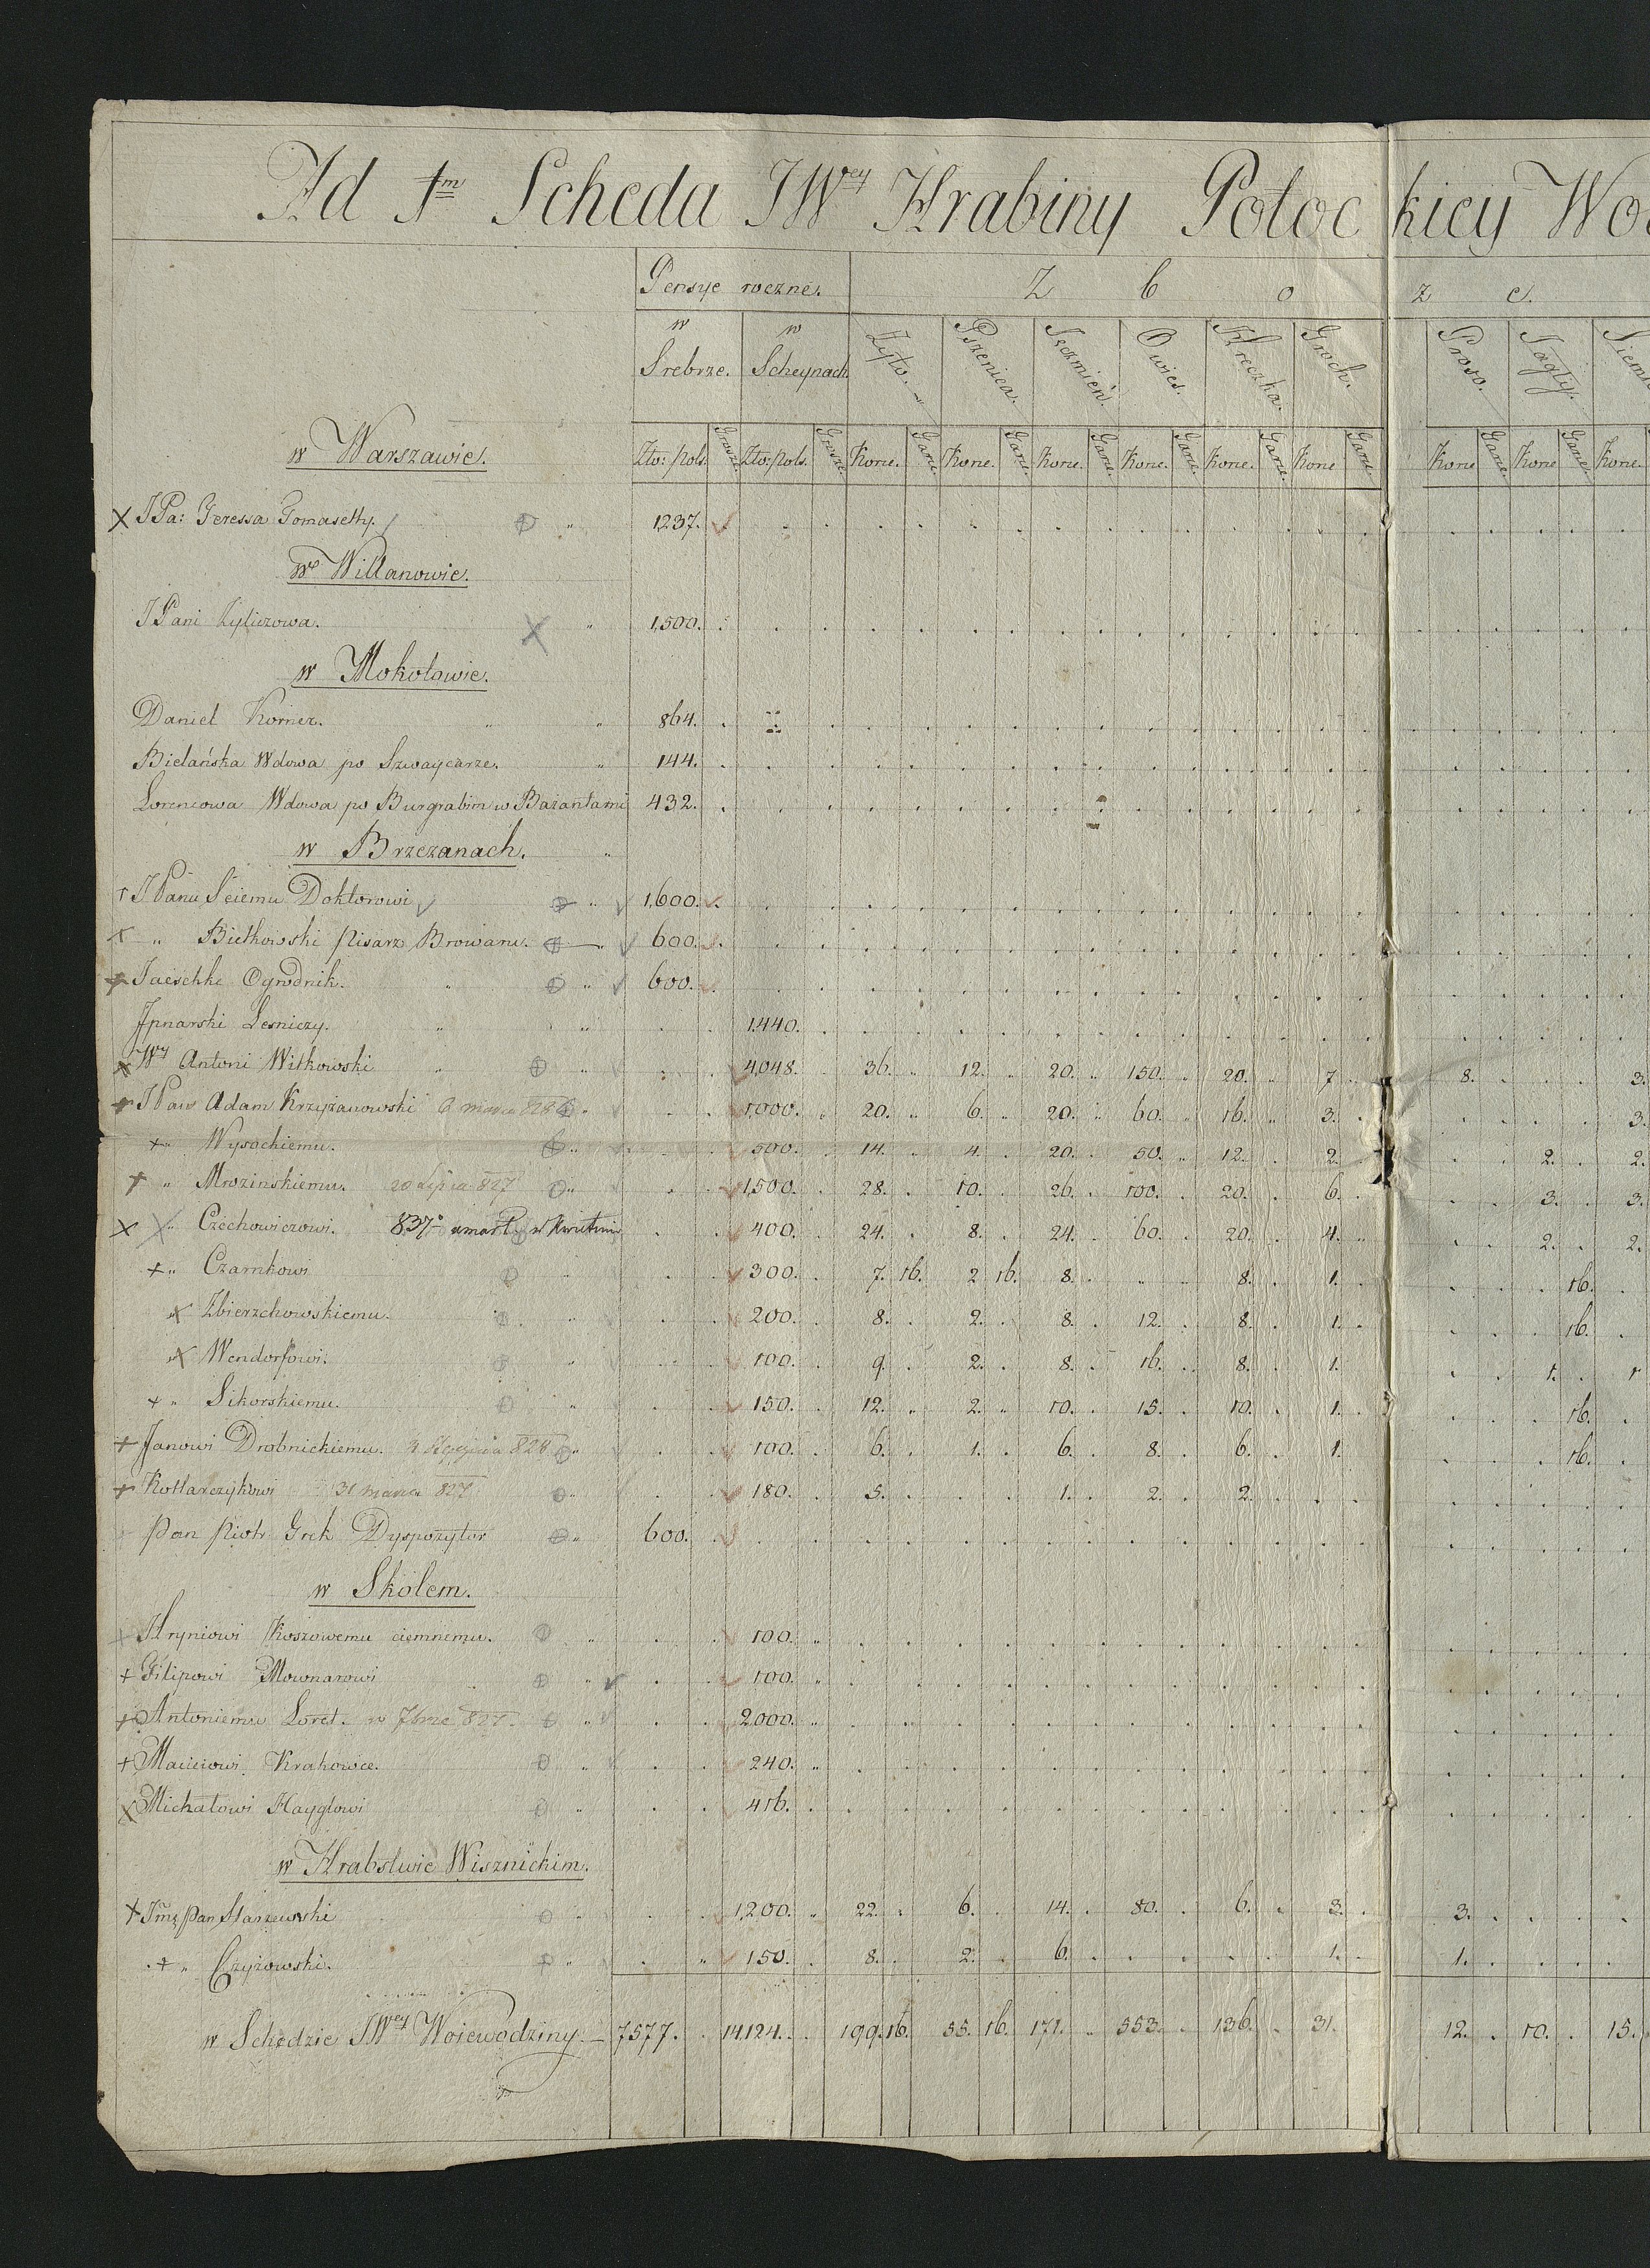 Ad 1m Scheda JWey Hrabiny Potockiey Wo
Pensye roczne. Z b o z e.
w Srebrze. w Scheynach. Żyto. Pszenica. Jęczmień. Owies. Hreczka. Groch. Proso. Jagły. Siemie
Zło: pols. Grosze Zło: pols. Grosze Korce. Garce. Korce. Garce. Korce. Garce. Korce. Garce. Korce. Garce. Korce Garce Korce Garce. Korce Garce. Korce.
w Warszawie.
X JPa: Teressa Tomasetty. 1237.
w Willanowie.
JPani Zyliczowa. X 1,500.
w Mokotowie.
Daniel Korner. 864.
Bielańska Wdowa po Szwaycarze. 144.
Lorencowa Wdowa po Burgrabim w Bażantarni 432.
w Brzezanach.
JPanu Sciemu Doktorowi 1,600.
" Bietkowski Pisarz Browaru. 600.
Jaeschke Ogrodnik. 600.
Jpnarski Lesniczy. 1,440.
Wy Antoni Witkowski 4,048. 36. 12. 20. 150. 20. 7 8. 3.
JPan Adam Krzyżanowski 6 marca 828 1,000. 20. 6. 20. 60. 16. 3. 3.
+ " Wysockiemu. 500. 14. 4. 20. 50. 12. 2. 2. 2.
+ " Mrozinskiemu. 20 Lipca 827 1,500. 28. 10. 26. 100. 20. 6. 3. 3.
X X " Czechowiczowi. 837o umarł w Kwietniu 400. 24. 8. 24. 60. 20. 4. 2. 2.
+ " Czarnkowi 300. 7. 16. 2 16. 8. 8. 1. 16.
X Zbierzchowskiemu. 200. 8. 2. 8. 12. 8. 1. 16.
X Wendorfowi. 100. 9. 2. 8. 16. 8. 1. 1. 1
+ " Sikorskiemu. 150. 12. 2. 10. 15. 10. 1. 16.
+ Janowi Drobnickiemu. 828 100. 6. 1. 6. 8. 6. 1. 16.
+ Kotlarczykowi 31 marca 827 180. 5. 1. 2. 2.
Pan Piotr Grek Dyspozytor 600.
w Skolem.
+ Hryniowi Koszowemu ciemnemu. 100.
+ Filipowi Mownarowi 100.
+ Antoniemu Loret. w 7brze 827. 2000.
+ Maciiowi Krakowice. 240.
X Michałowi Hayglowi 416.
w Hrabstwie Wisznickim.
+ Jmć Pan Starzewski 1,200. 22. 6. 14. 80. 6. 3. 3.
+ " Czyżowski. 150. 8. 2. 6. 1. 1.
w Schedzie JWey Woiewodziny. 7577. 14,124. 199. 16. 55. 16. 171. 553. 136. 31. 12. 10. 15.